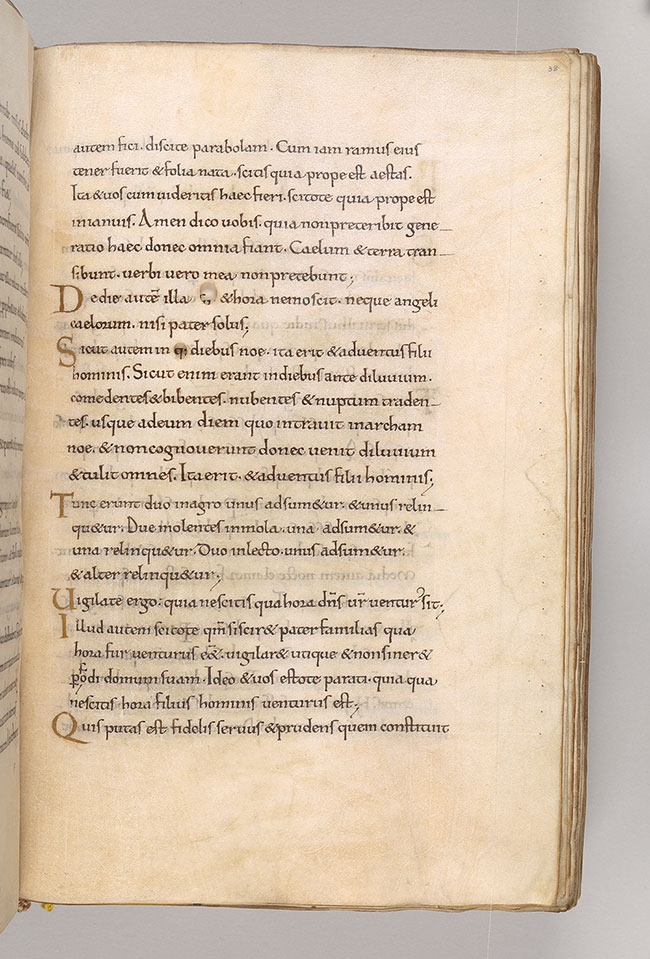 38
autem fici. discite parabolam. Cum iam ramus eius
tener fuerit & folia nata. scitis quia prope est aestas.
Ita & uos cum uideritis haec fieri. scitote quia prope est
inianuis. Amen dico uobis. quia non preteribit gene
ratio haec donec omnia fiant. Caelum & terra tran
sibunt. uerbi uero mea non pretebunt;
De die autē illa & hora nemo scit. neque angeli
caelorum. nisi pater solus;
Sicut autem in diebus noe. ita erit & aduentus filii
hominis. Sicut enim erant in diebus ante diluuium.
comedentes & bibentes. nubentes & nuptum traden
tes. usque ad eum diem quo intrauit in archam
noe. & non cognouerunt donec uenit diluuium
& tulit omnes. Ita erit. & aduentus filii hominis;
Tunc erunt duo in agro unus adsum&ur. & unus relin
qu&ur. Due molentes in mola. una adsum&ur. &
una relinqu&ur. Duo in lecto. unus adsum&ur.
& alter relinqu&ur;
Uigilate ergo: quia nescitis qua hora dn̄s ur̄ uentur' sit;
Illud autem scitote qm̄ si scir& pater familias qua
hora fur uenturus eē&. uigilar& utique & non siner&
di domum suam. Ideo & uos estote parati. quia qua
nescitis hora filius hominis uenturus est;
Quis putas est fidelis seruus & prudens quem constituit